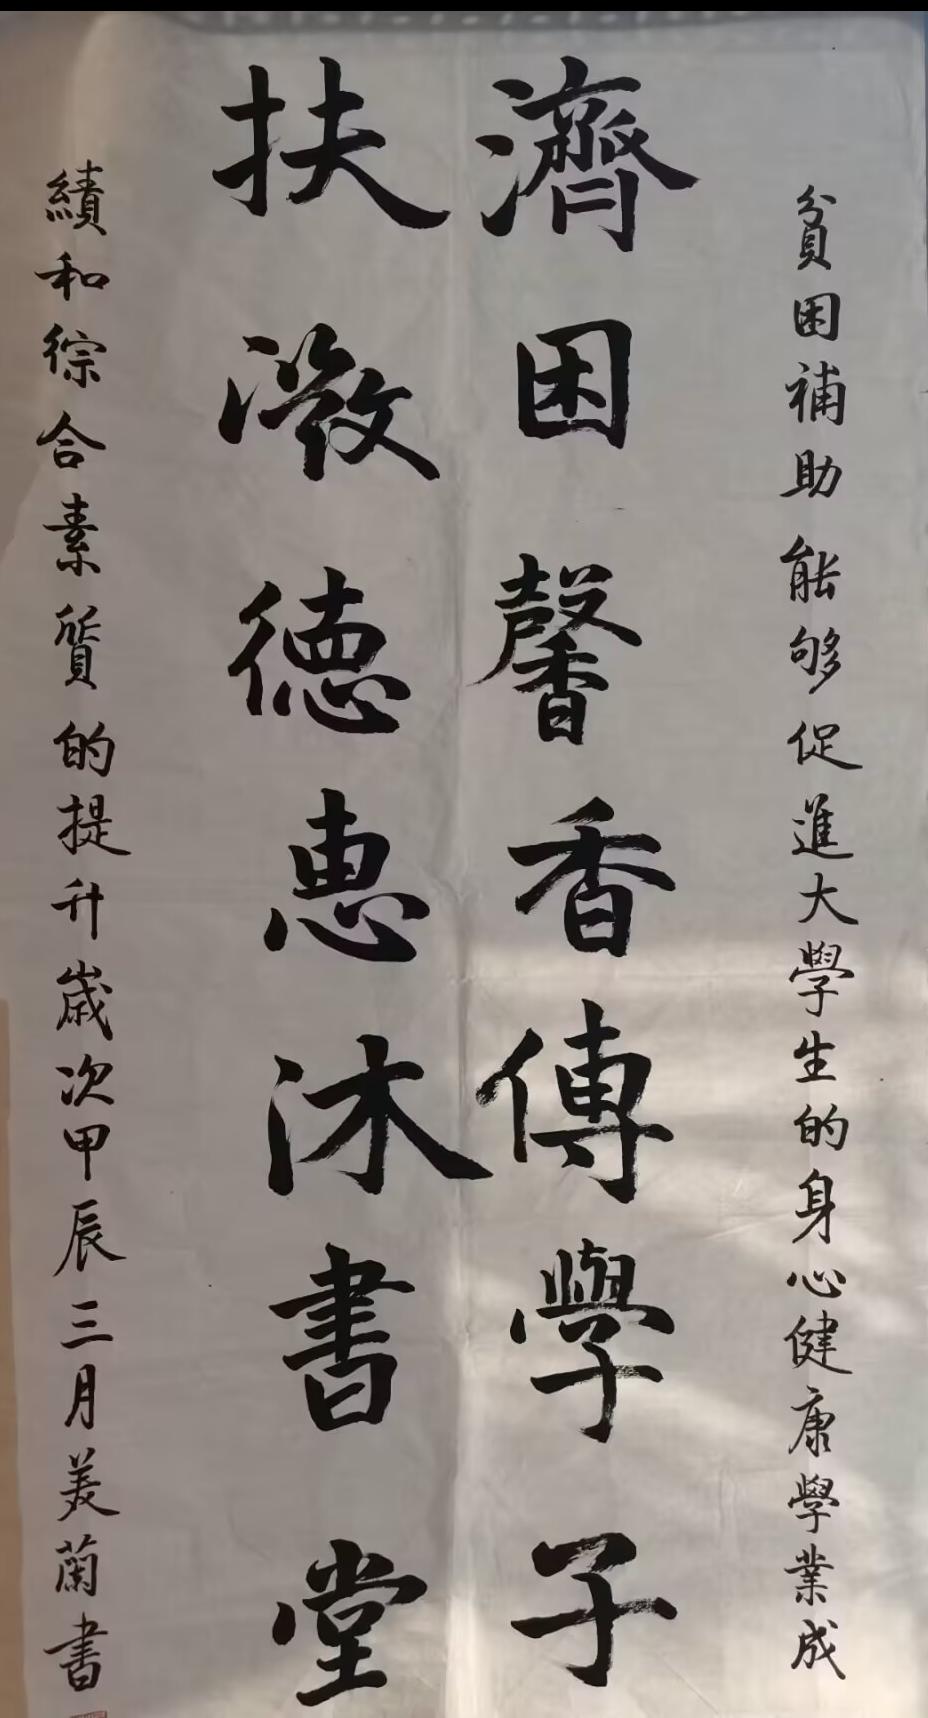 貧困補助能够促進大學生的身心健康學業成
濟困馨香傳學子
扶德惠沐書堂
績和綜合素質的提升歲次甲辰三月美蘭書